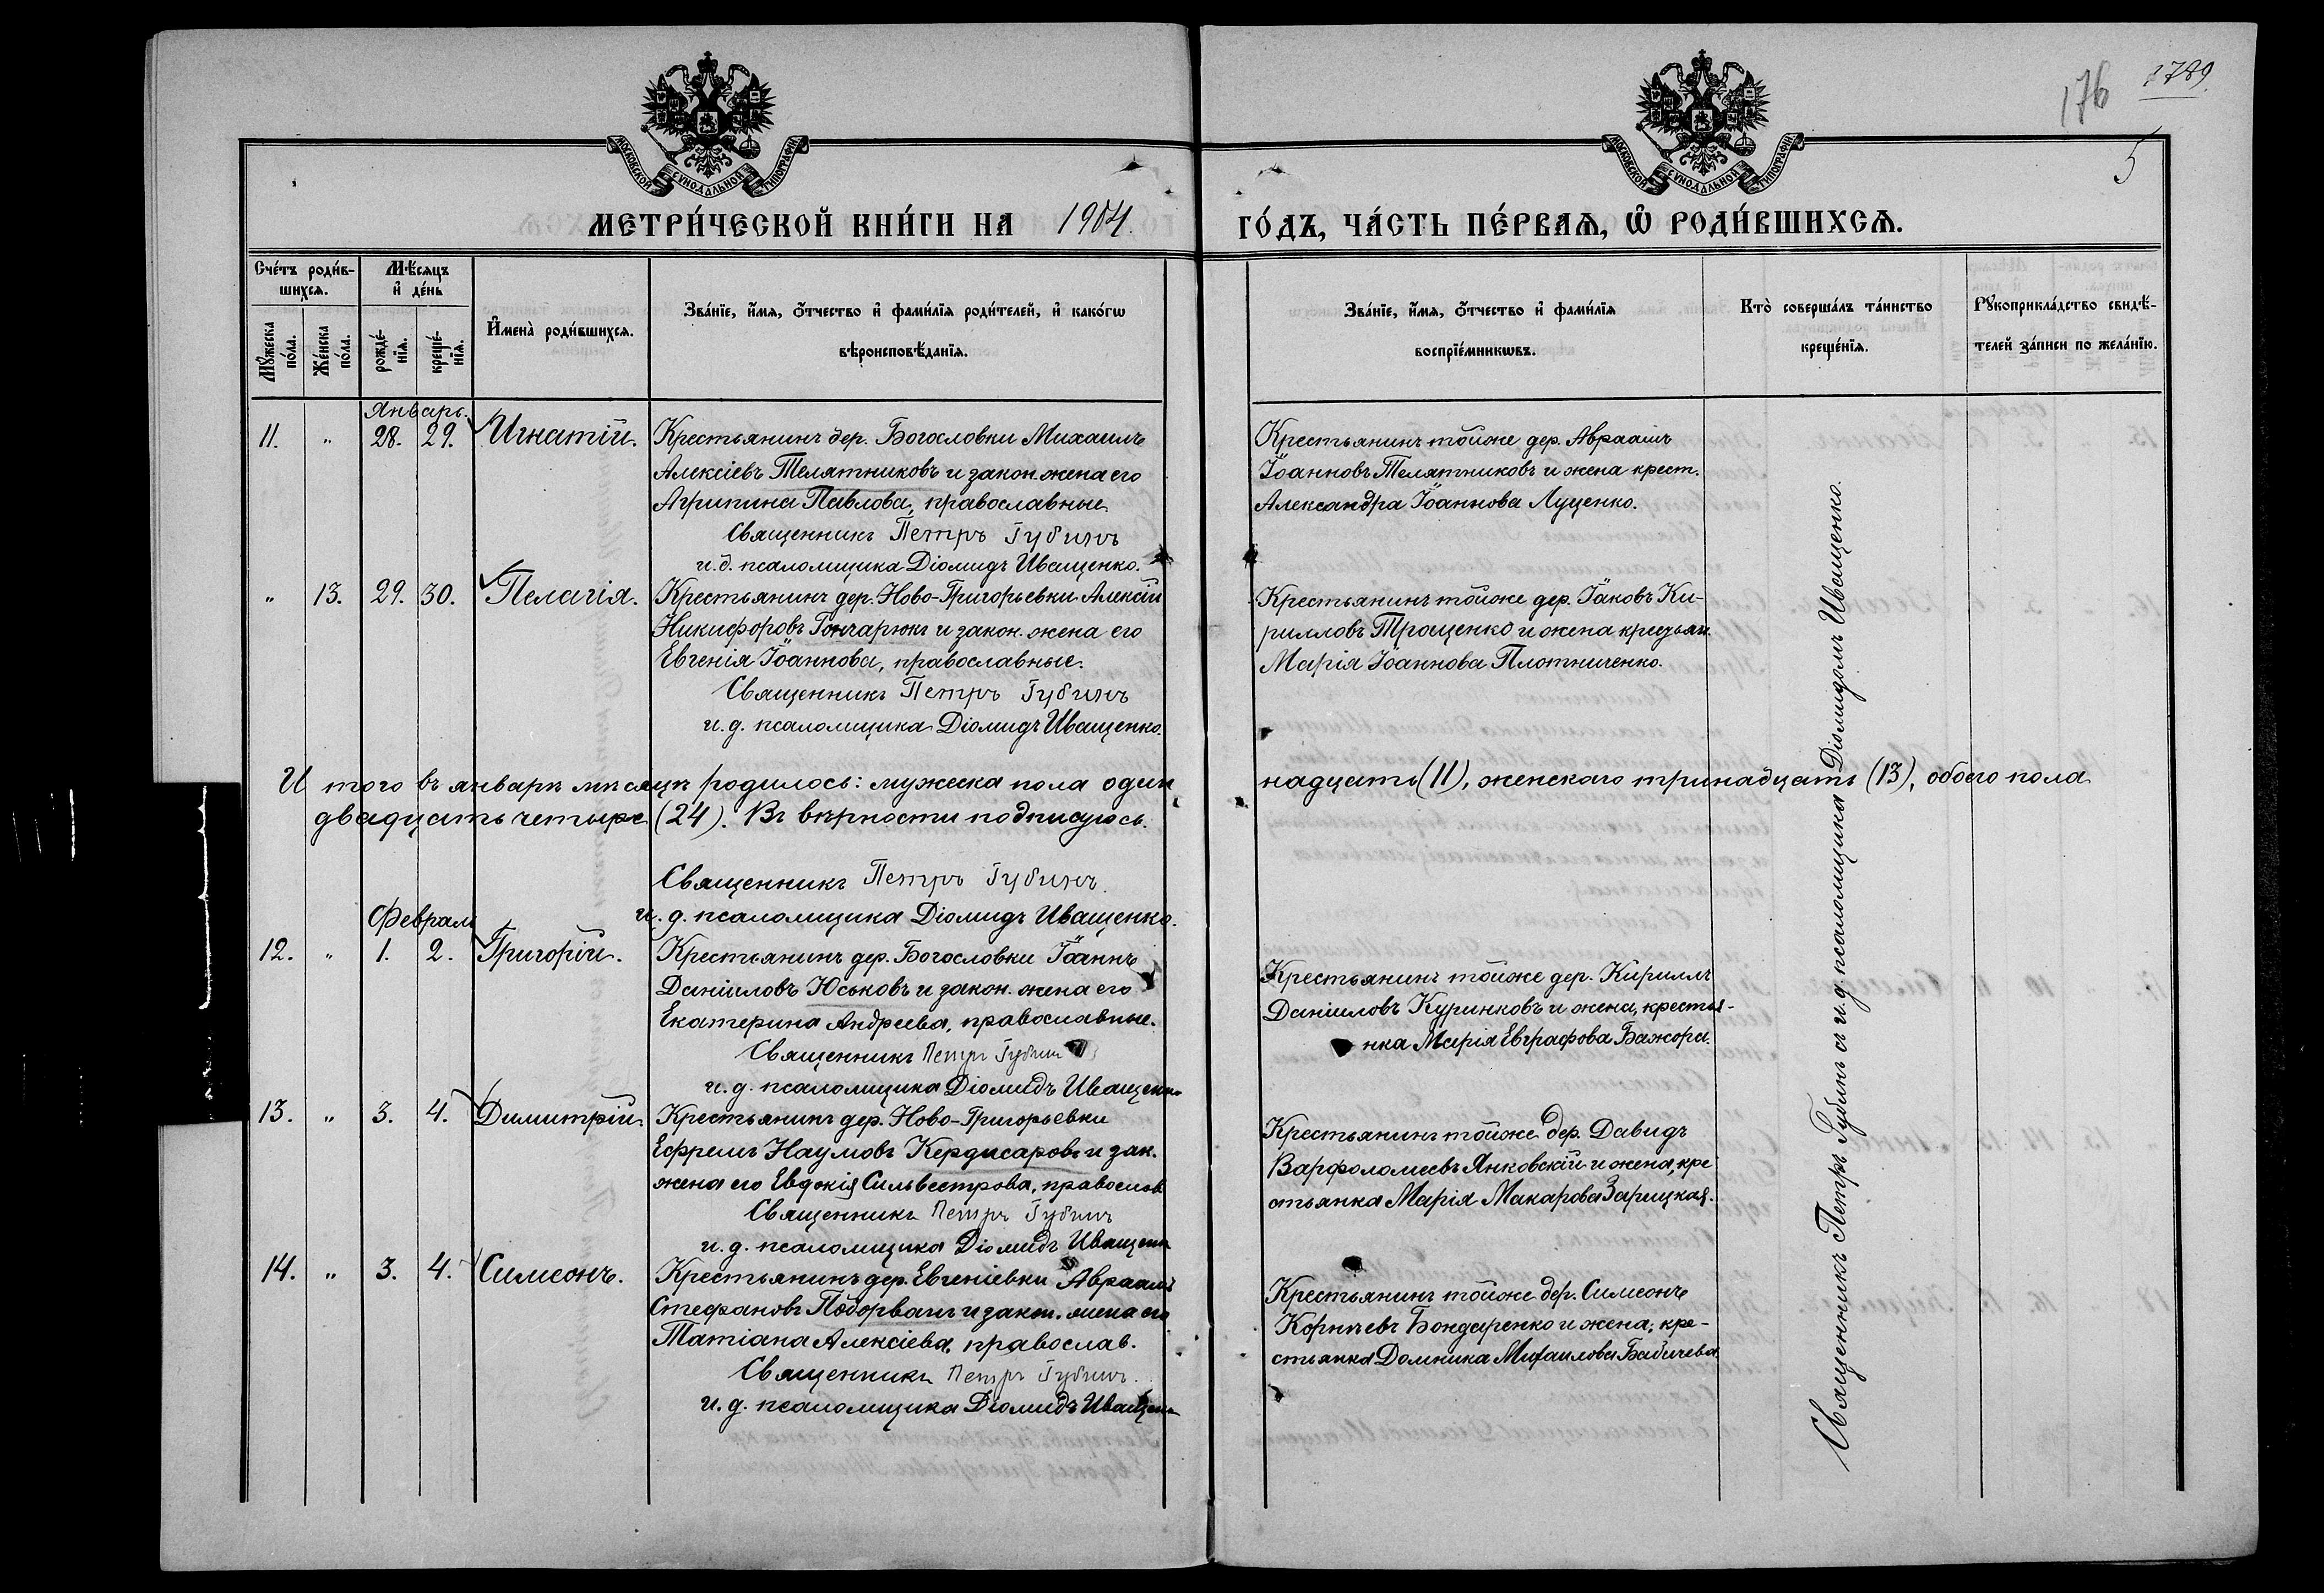 176
1789
5
МОСКОВСКОЙ СѴНОДАЛЬНОЙ ТИПОГРАФІИ
МОСКОВСКОЙ СѴНОДАЛЬНОЙ ТИПОГРАФІИ
МЕТРИ́ЧЕСКОЙ КНИ́ГИ НА 1904. ГО́ДЪ, ЧА́СТЬ ПЕ́РВАѦ, Ѡ҆ РОДИ́ВШИХСѦ.
Сче́тъ роди́в-
шихсѧ.
Мѣ́сѧцъ
и҆ де́нь
Мꙋ́жеска
по́ла.
Же́нска
по́ла.
рожде́-
нїѧ.
креще́-
нїѧ.
И҆мена̀ роди́вшихсѧ.
Зва́нїе, и҆́мѧ, ѻ҆́тчество и҆ фами́лїѧ роди́телей, и҆ како́гѡ
вѣроисповѣ́данїѧ.
Зва́нїе, и҆́мѧ, ѻ҆́тчество и҆ фами́лїѧ
воспрїе́мникѡвъ.
Кто̀ соверша́лъ та́инство
креще́нїѧ.
Рꙋкоприкла́дство свидѣ́-
телей за́писи по жела́нїю.
Январь.
11. " 28. 29. Игнатій. Крестьянинъ дер. Богословки Михаилъ
Алексіевъ Телятниковъ и закон. жена его
Агрипина Павлова, православные
Священникъ Петръ Губинъ
и. д. псаломщика Діомидъ Иващенко.
Крестьянинъ тойже дер. Авраамъ
Іоанновъ Телятниковъ и жена крест.
Александра Іоаннова Луценко.
" 13. 29. 30. Пелагія. Крестьянинъ дер. Ново-Григорьевки Алексій
Никифоровъ Гончарюкъ и закон. жена его
Евгенія Іоаннова, православные.
Священникъ Петръ Губинъ
и. д. псаломщика Діомидъ Иващенко.
Крестьянинъ тойже дер. Іаковъ Ки-
рилловъ Троценко и жена
Марія Іоаннова Плотниченко.
И того въ январѣ мѣсяцѣ родилось: мужеска пола один надцать (11), женскаго тринадцать (13), обоего пола
двадцать четыре (24). Въ вѣрности подписуюсь.
Священникъ Петръ Губинъ.
и. д. псаломщика Діомидъ Иващенко.
Февраль
12. " 1. 2. Григорій. Крестьянинъ дер. Богословки Іоаннъ
Даніиловъ Юськовъ и закон. жена его
Екатерина Андреева, православные.
Священникъ Петръ Губин
и. д. псаломщика Діомидъ Иващенко
Крестьянинъ тойже дер. Кириллъ
Даніиловъ Куринковъ и жена, крестья-
нка Марія Евграфова Бажора.
13. " 3. 4. Димитрій. Крестьянинъ дер. Ново-Григорьевки
Ефремъ Наумовъ Кердисаровъ и зак.
жена его Евдокія Сильвестрова, православ
Священникъ Петръ Губинъ
и. д. псаломщика Діомидъ Иващен
Крестьянинъ тойже дер. Давидъ
Варфоломеевъ Янковскій и жена, кре
стьянка Марія Макарова Зарицкая.
14. " 3. 4. Симеонъ. Крестьянинъ дер. Евгеніевки Авраамъ
Стефановъ Подорванъ и закон. жена его
Татіана Алексіева, православ.
Священникъ Петръ Губинъ.
и. д. псаломщика Діомидъ Иващен
Крестьянинъ тойже дер. Симеонъ
Бондаренко и жена, кре-
стьянка Домника Михаилова Бабичева.
Священникъ Петръ Губинъ съ и. д. псаломщика Діомидомъ Иващенко.